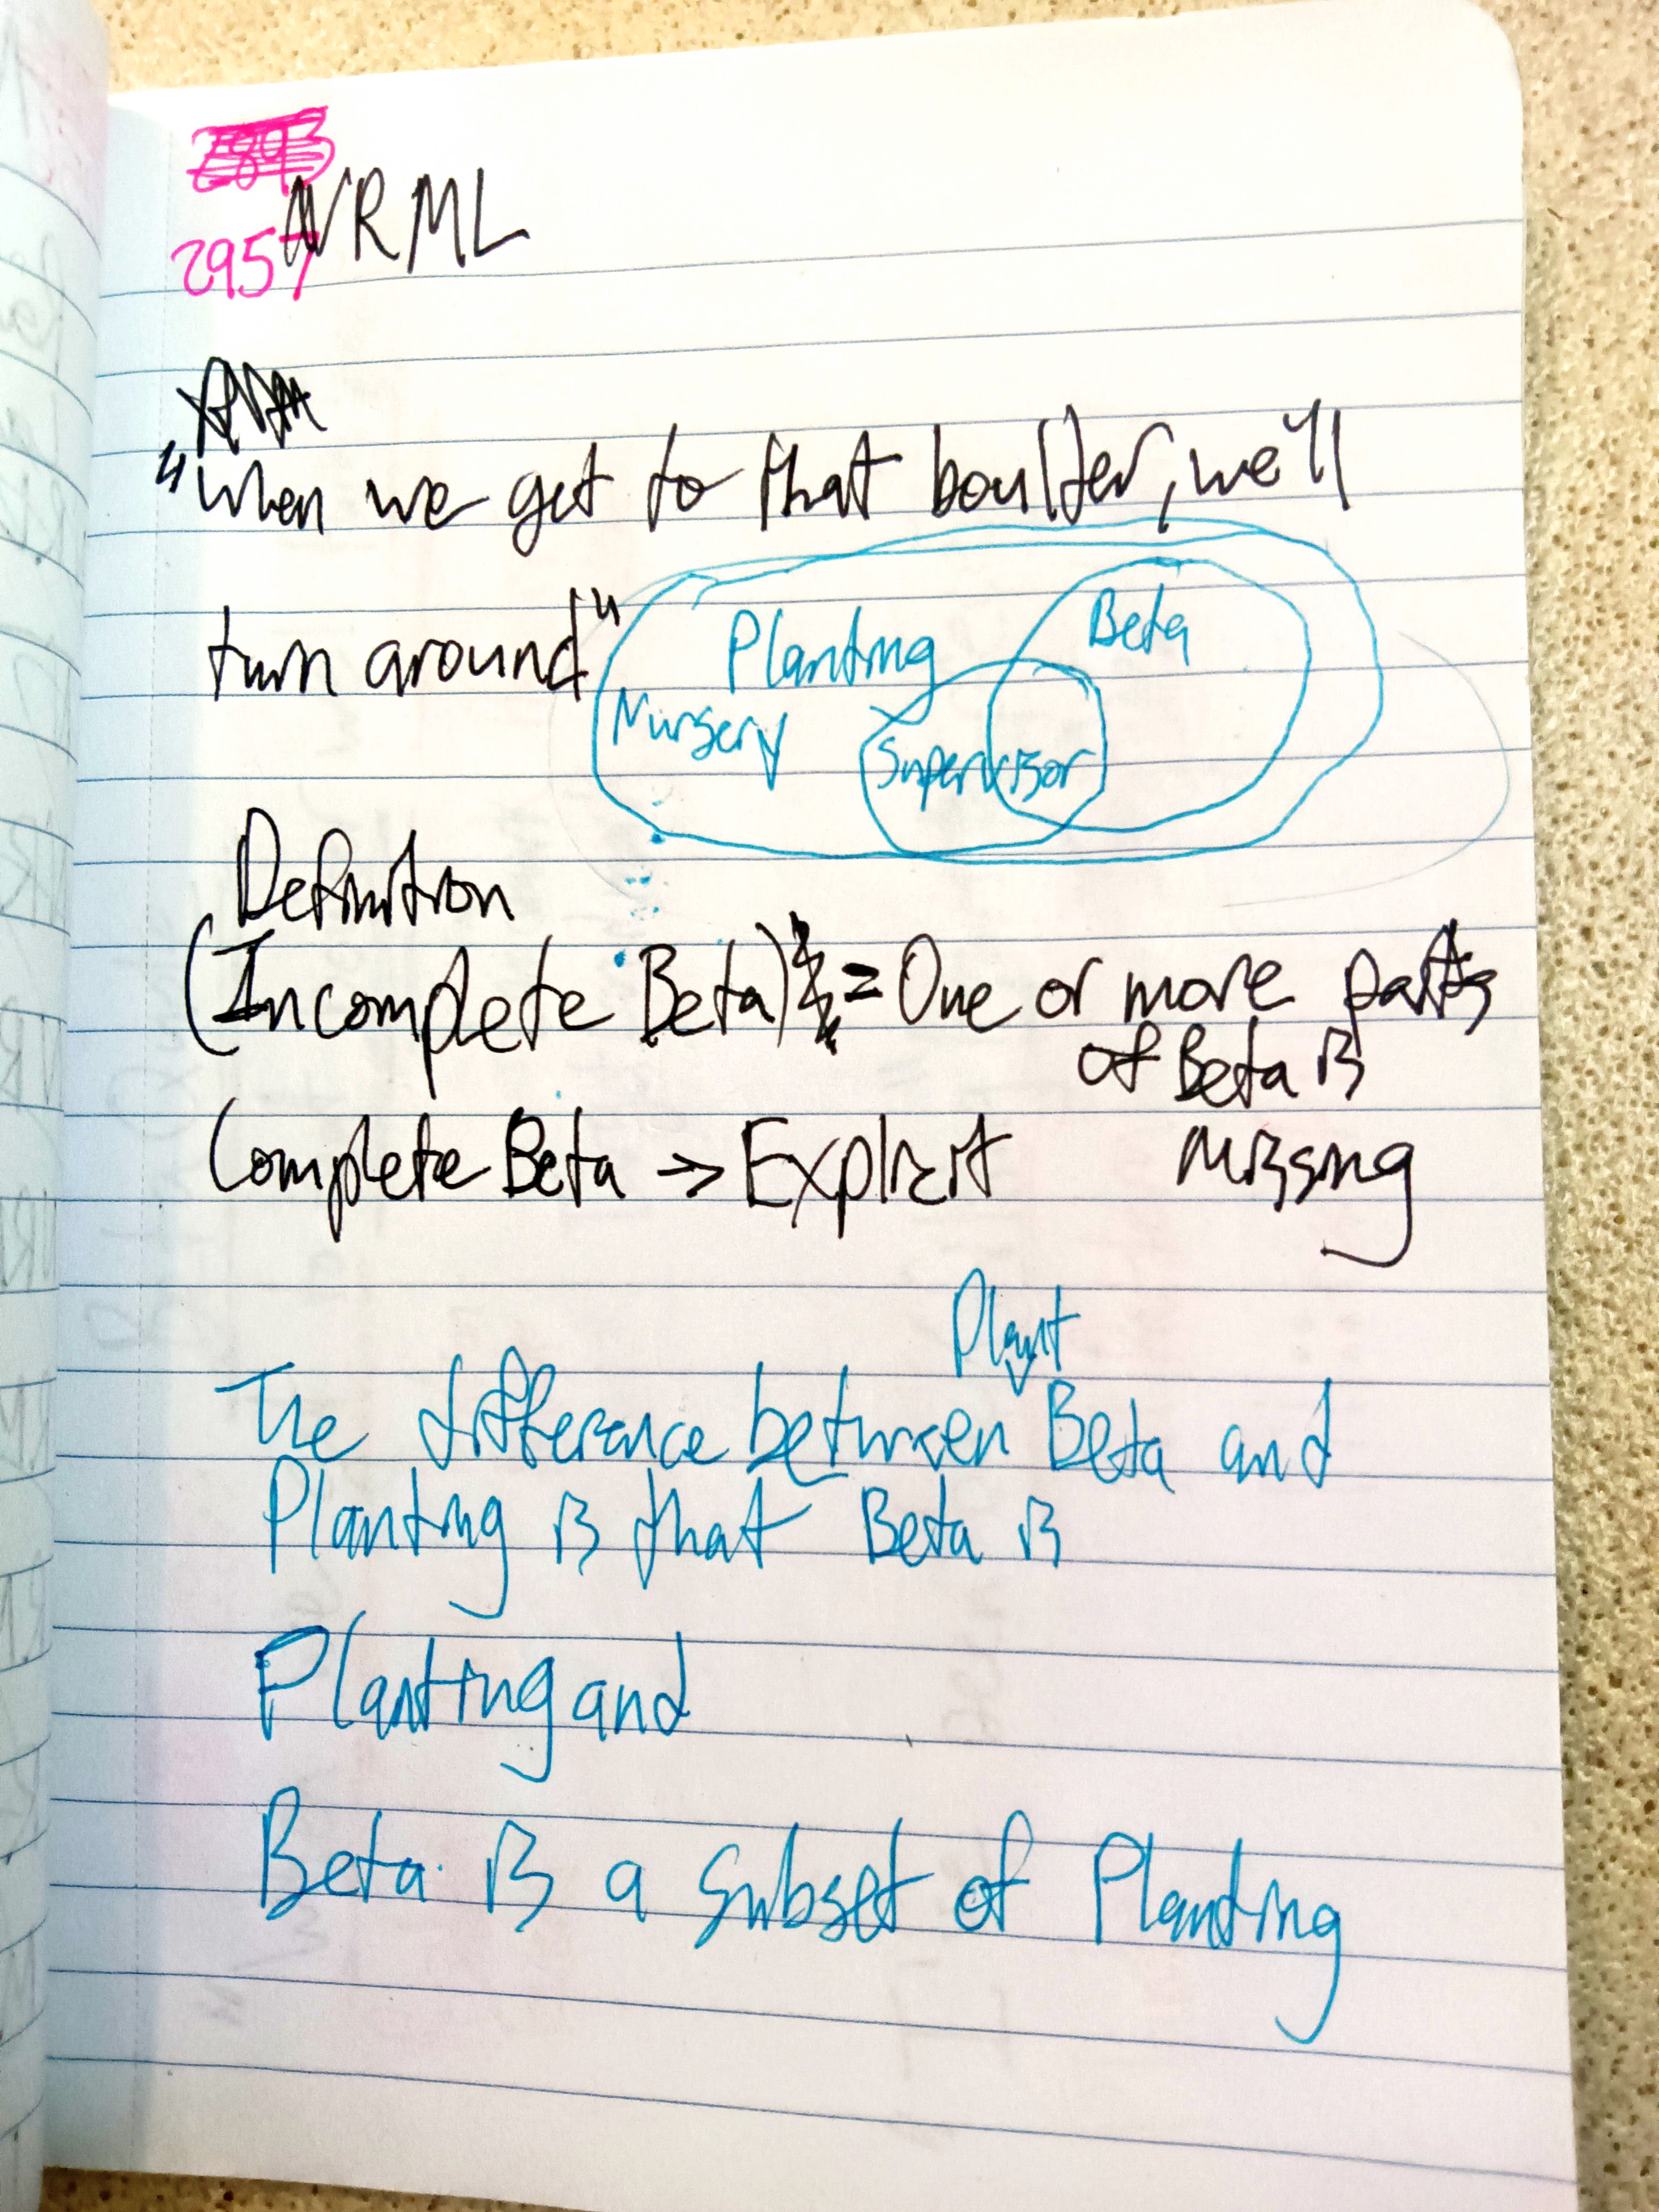 2957
NRML
"When we get to that boulder, we'll
turn around"
Planting
Beta
Nursery
Supervisor
Definition
(Incomplete Beta) = One or more parts
of Beta is
missing
Complete Beta → Explicit
Plant
The difference between Beta and
Planting is that Beta is
Planting and
Beta is a subset of Planting